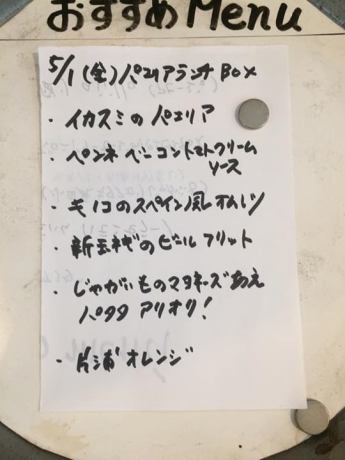 おすすめMenu
5/1(金)パエリアランチBOX
・イカスミのパエリア
・ペンネベーコントマトクリーム
ソース
・キノコのスペイン風オムレツ
・新玉ネギのビールフリット
・じゃがいものマヨネーズあえ
パタタアリオリ!
・片浦オレンジ